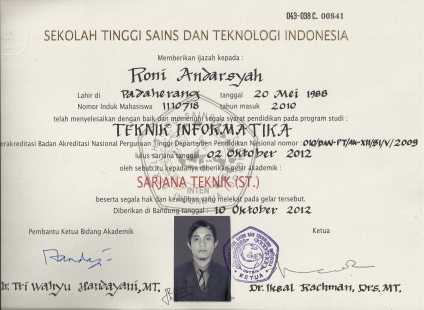 043-038 C. 00841
SEKOLAH TINGGI SAINS DAN TEKNOLOGI INDONESIA
Memberikan ijazah kepada :
Roni Andarsyah
Lahir di Padaherang tanggal 20 Mei 1988
Nomor Induk Mahasiswa 1110718 tahun masuk 2010
telah menyelesaikan dengan baik dan memenuhi segala syarat pendidikan pada program studi :
TEKNIK INFORMATIKA
erakreditasi Badan Akreditasi Nasional Perguruan Tinggi Departemen Pendidikan Nasional nomor 010/BAN-PT/Ak-XII/S1/V/2009
lulus sarjana tanggal 02 Oktober 2012
oleh sebab itu kepadanya diberikan gelar akademik :
SARJANA TEKNIK (ST.)
beserta segala hak dan kewajiban yang melekat pada gelar tersebut.
Diberikan di Bandung tanggal : 10 Oktober 2012
Pembantu Ketua Bidang Akademik
Ketua
Ir. Tri Wahyu Handayani, MT.
Dr. Iksal Rachman, Drs. MT.
KETUA